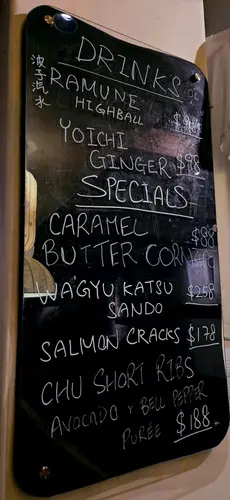 DRINKS
波子汽水
RAMUNE
HIGHBALL
YOICHI
GINGER $98
SPECIALS
CARAMEL $88
BUTTER CORN
WAGYU KATSU $258
SANDO
SALMON CRACKS $178
CHU SHORT RIBS
AVOCADO & BELL PEPPER
PURÉE $188